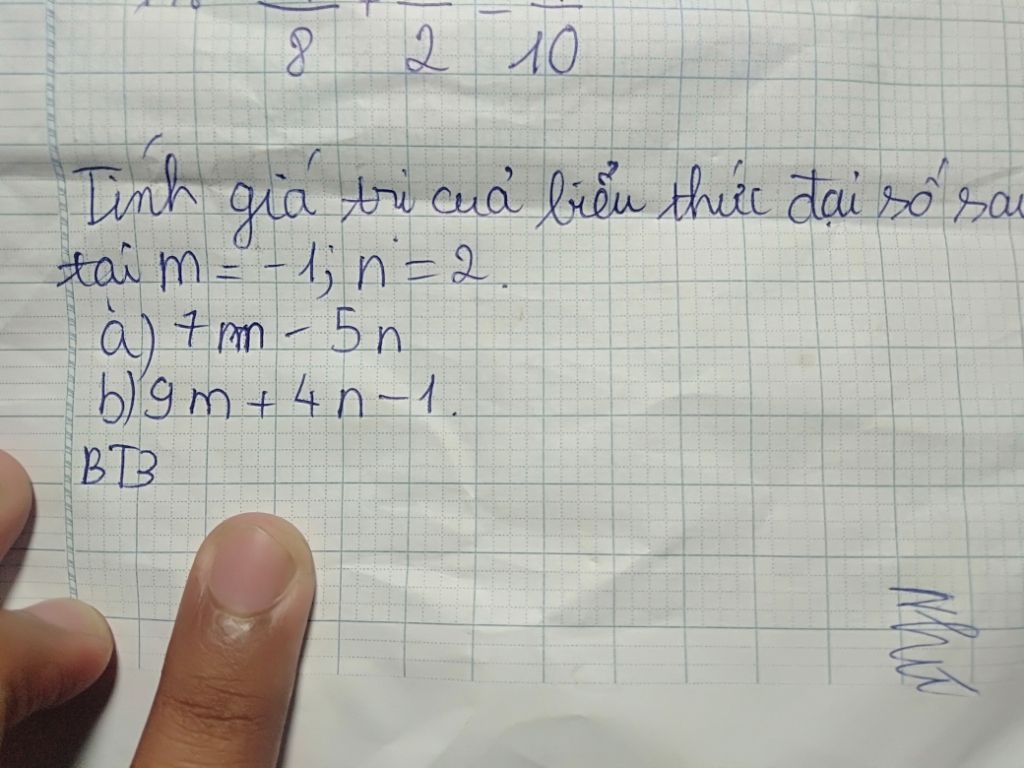 8 2 10
Tính giá trị của biểu thức đại số sau
tại m = -1; n = 2.
a) 7m - 5n
b) 9m + 4n - 1.
BTB